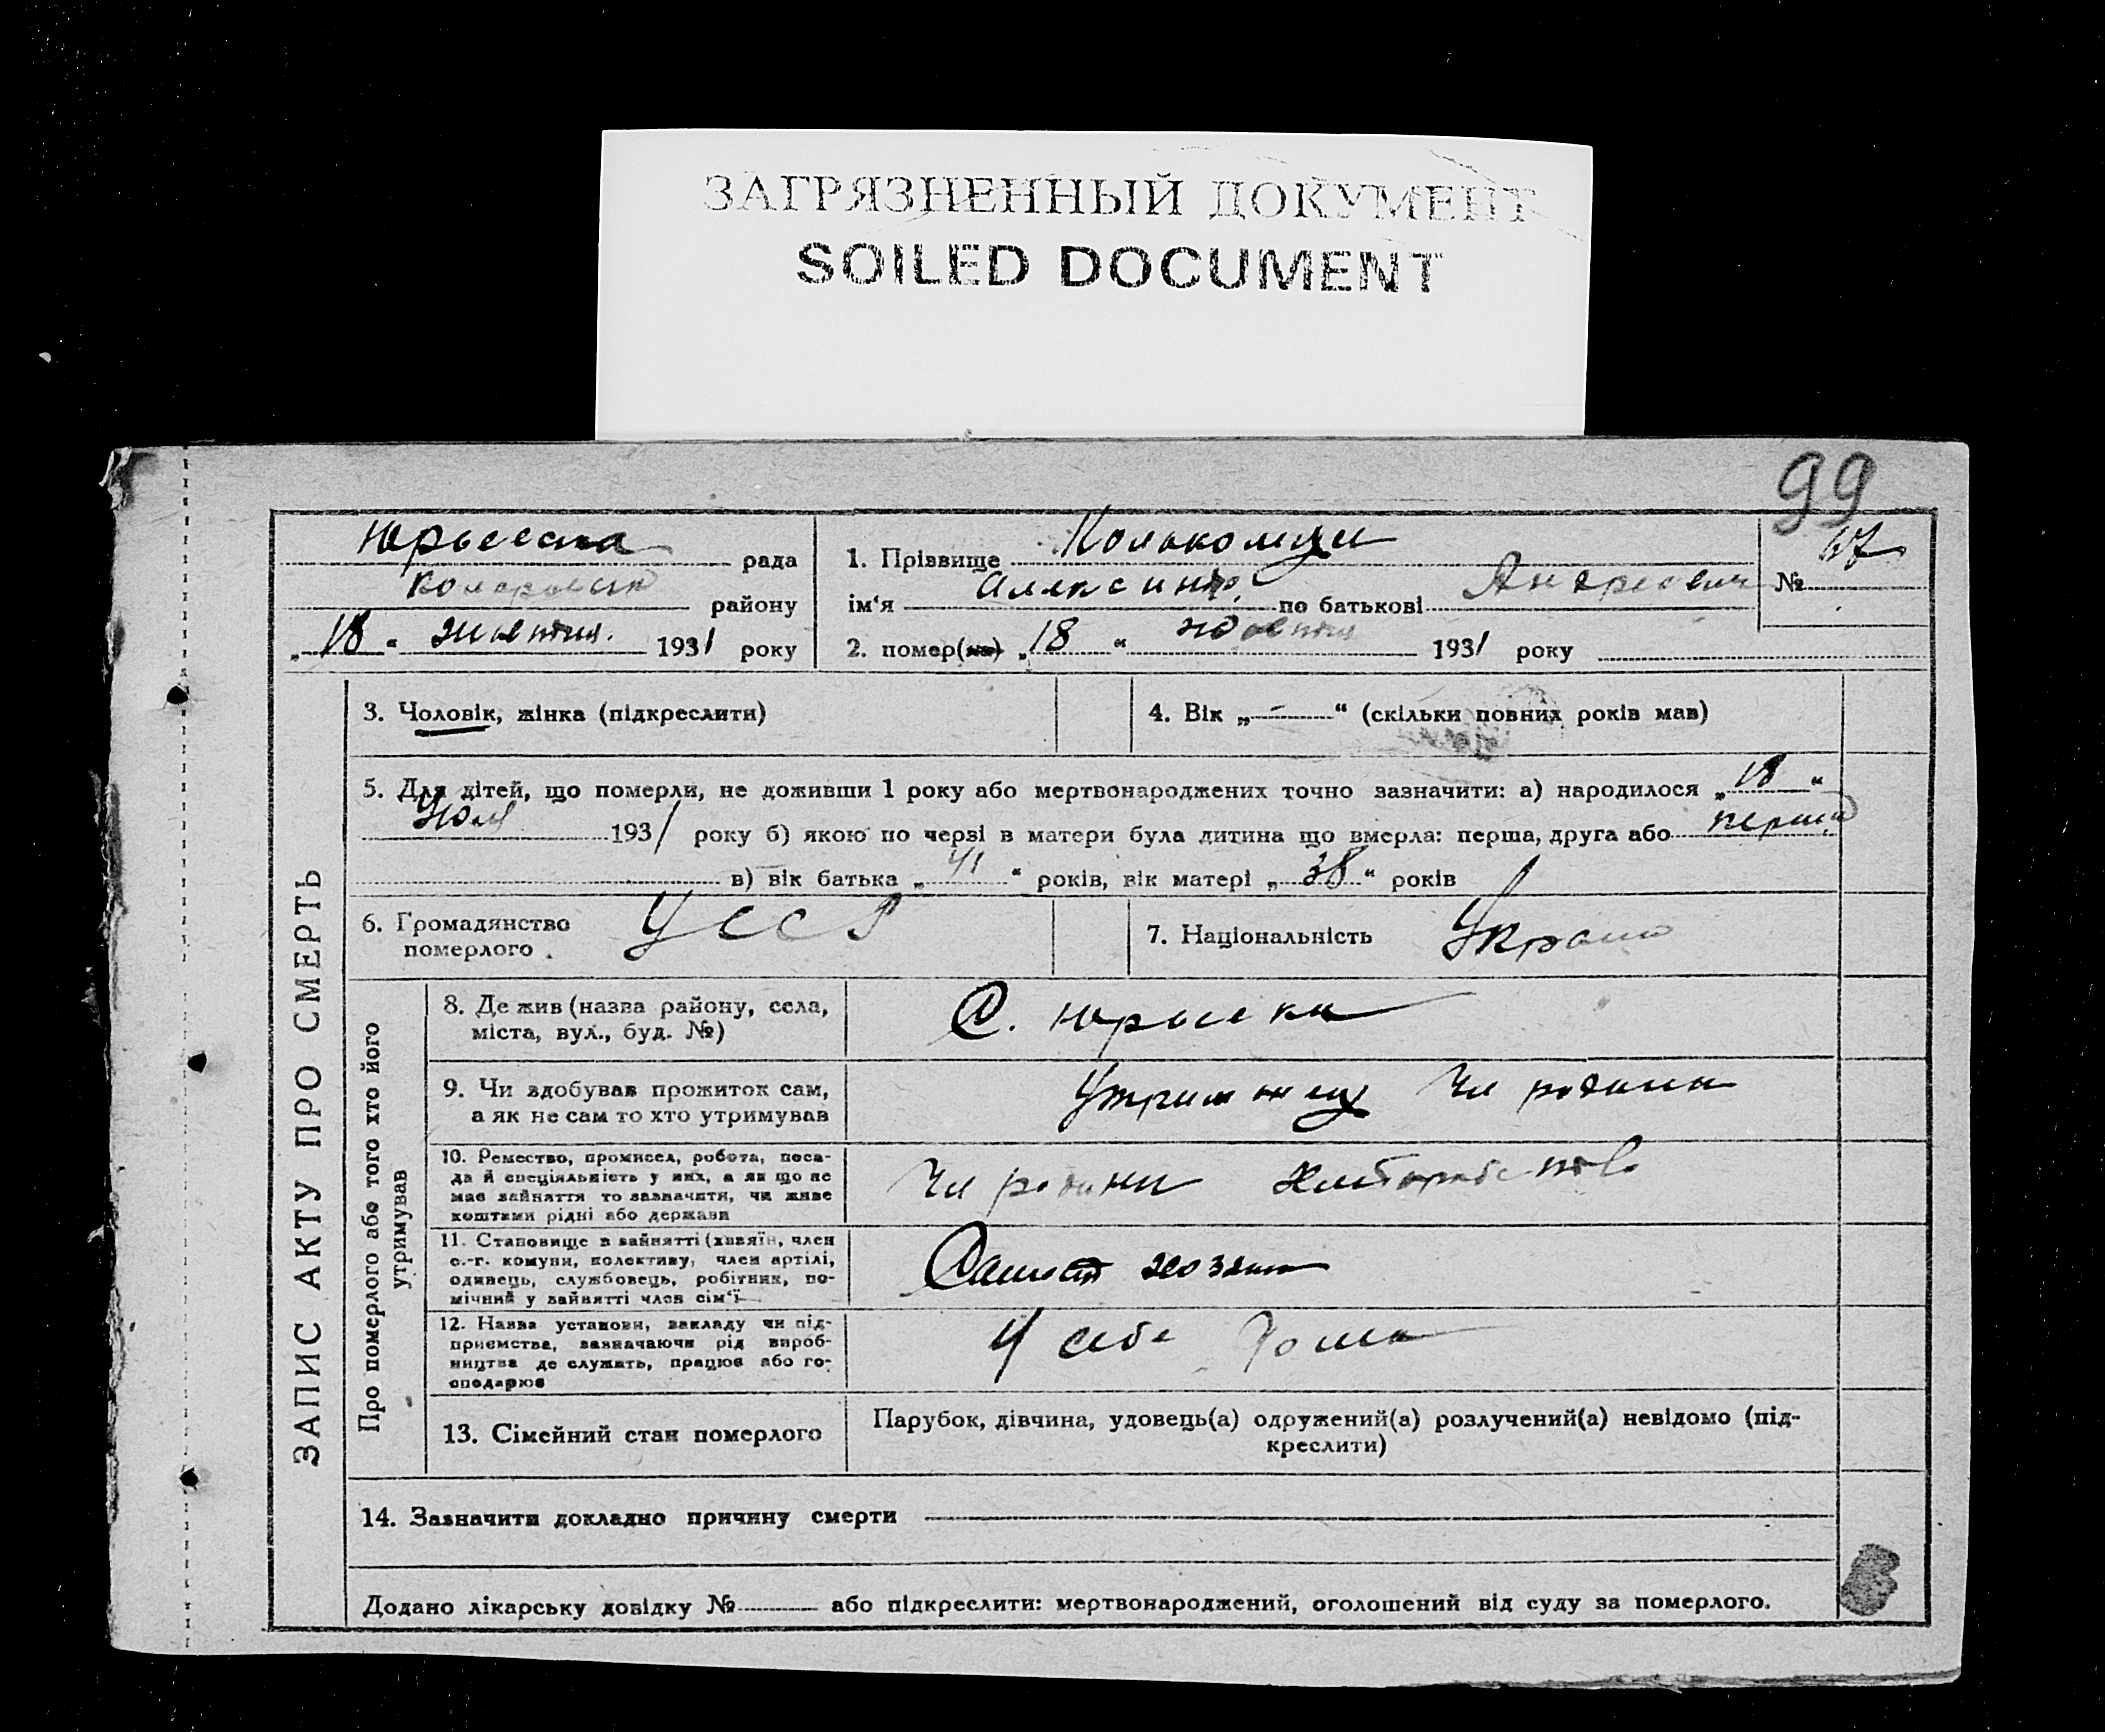 ЗАГРЯЗНЕННЫЙ ДОКУМЕНТ
SOILED DOCUMENT
99
рада
району
„18“ жовтня 1931 року
1. Прізвище
ім‘я по батькові Андреевич
№ 67
2. помер(ла) „18“ жовтня 1931 року
ЗАПИС АКТУ ПРО СМЕРТЬ
3. Чоловік, жінка (підкреслити)
4. Вік „-“ (скільки повних років мав)
5. Для дітей, що померли, не доживши 1 року або мертвонароджених точно зазначити: а) народилося „18“
1931 року б) якою по черзі в матери була дитина що вмерла: перша, друга або перша
в) вік батька „41“ років, вік матері „38“ років
6. Громадянство померлого УССР
7. Національність
Про померлого або того хто його утримував
8. Де жив (назва району, села,
міста, вул., буд. №)
С.
9. Чи здобував прожиток сам,
а як не сам то хто утримував
10. Ремество, промисел, робота, поса-
да й спеціяльність у них, а як що не
має зайняття то зазначити, чи живе
коштами рідні або держави
11. Становище в зайнятті (хазяїн, член
с.-г. комуни, колективу, член артілі,
одинець, службовець, робітник, по-
мічний у зайнятті член сім‘ї
12. Назва установи, закладу чи під-
приємства, зазначаючи рід вироб-
ництва де служать, працює або го-
сподарює
У себе дома
13. Сімейний стан померлого
Парубок, дівчина, удовець(а) одружений(а) розлучений(а) невідомо (під-
креслити)
14. Зазначити докладно причину смерти
Додано лікарську довідку № або підкреслити: мертвонароджений, оголошений від суду за померлого.